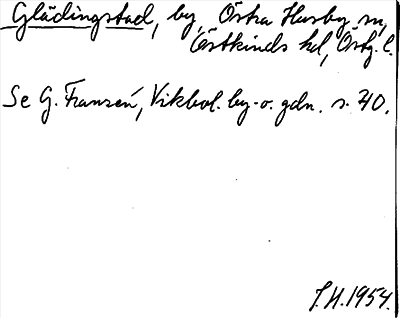 Glädingstad, by, Östra Husby sn,
Östkinds hd, Östg. l.
Se G. Franzén, Vikbol. by- o. gdn. s. 40.
J. H. 1954.